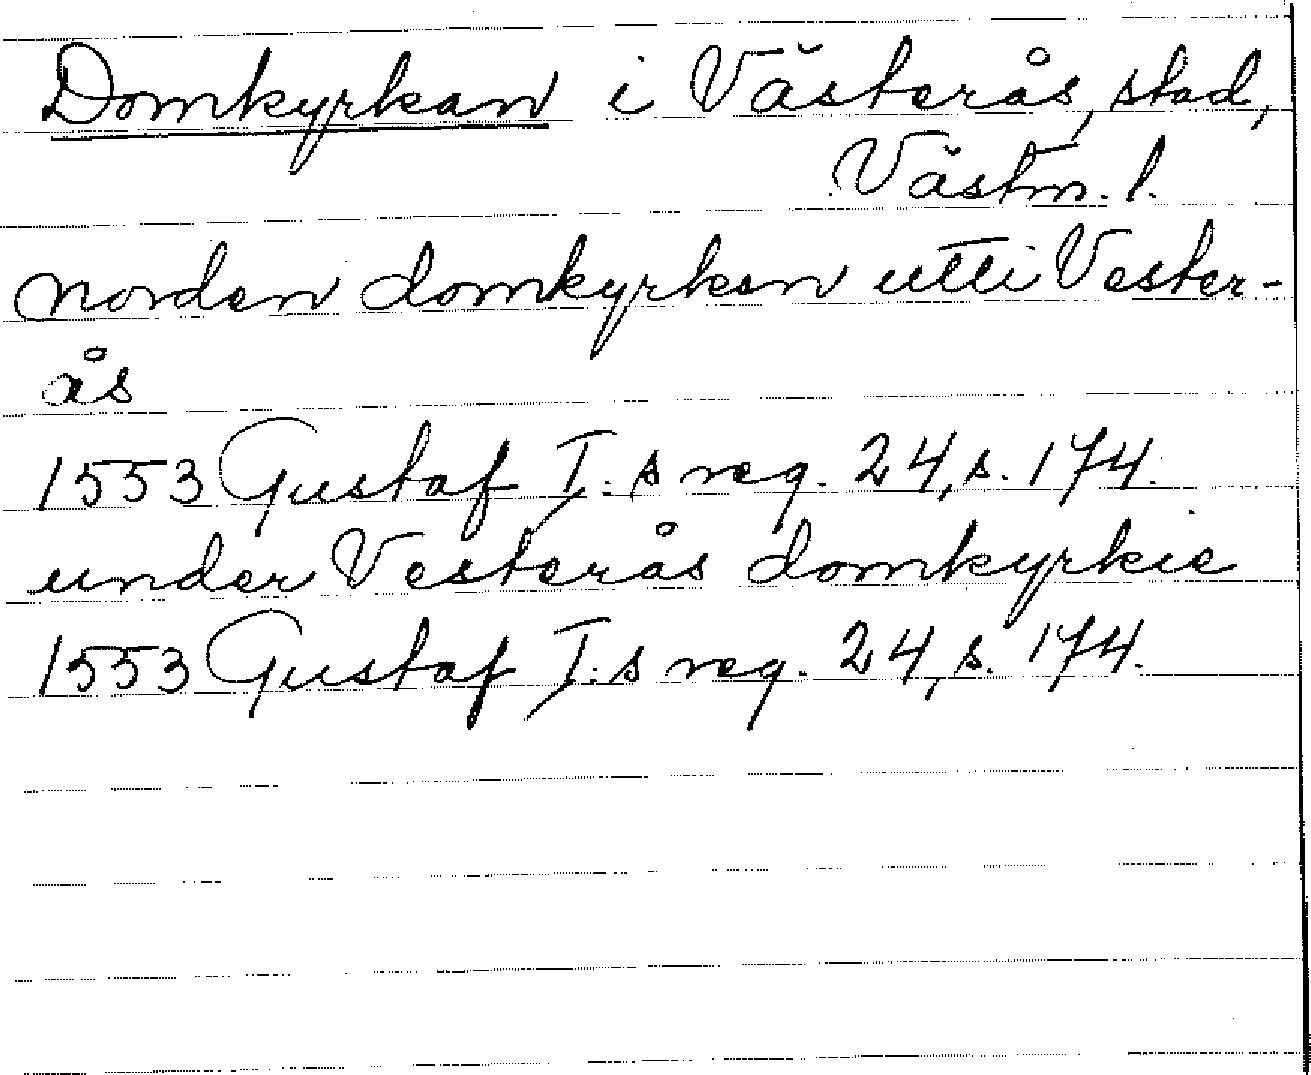 Domkyrkan i Västerås, stad,
Västm. l.
norden domkyrken utti Vester-
ås
1553 Gustaf I:s reg. 24, s. 174.
under Vesterås domkyrkie
1553 Gustaf I:s reg. 24, s. 174.